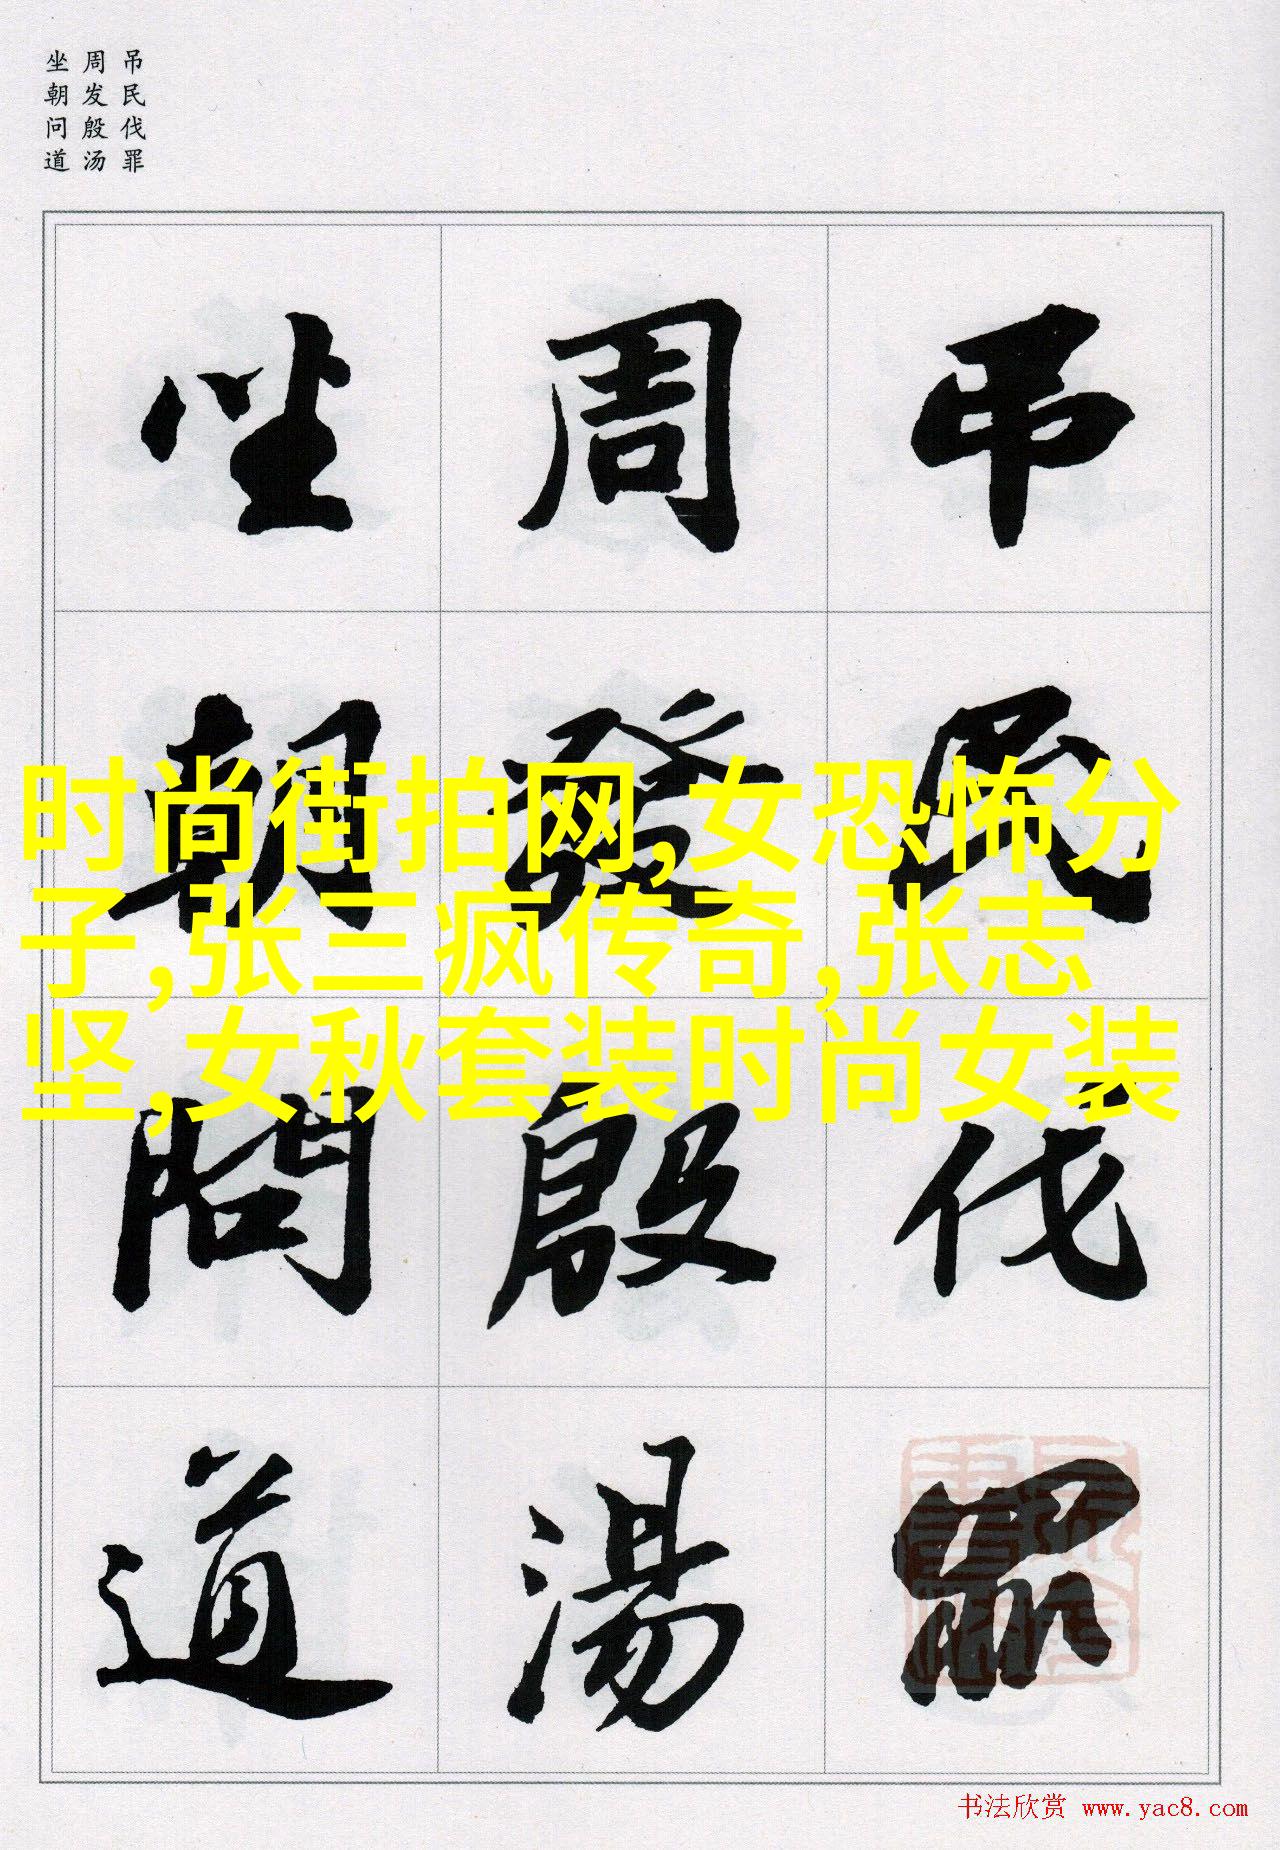 吊民伐罪
周发殷汤
坐朝问道
吊民伐罪
周發殷湯
坐朝問道
时尚街拍网,女恐怖分
子,张三疯传奇,张志
坚,女秋套装时尚女装
书法欣赏 www.yac8.com